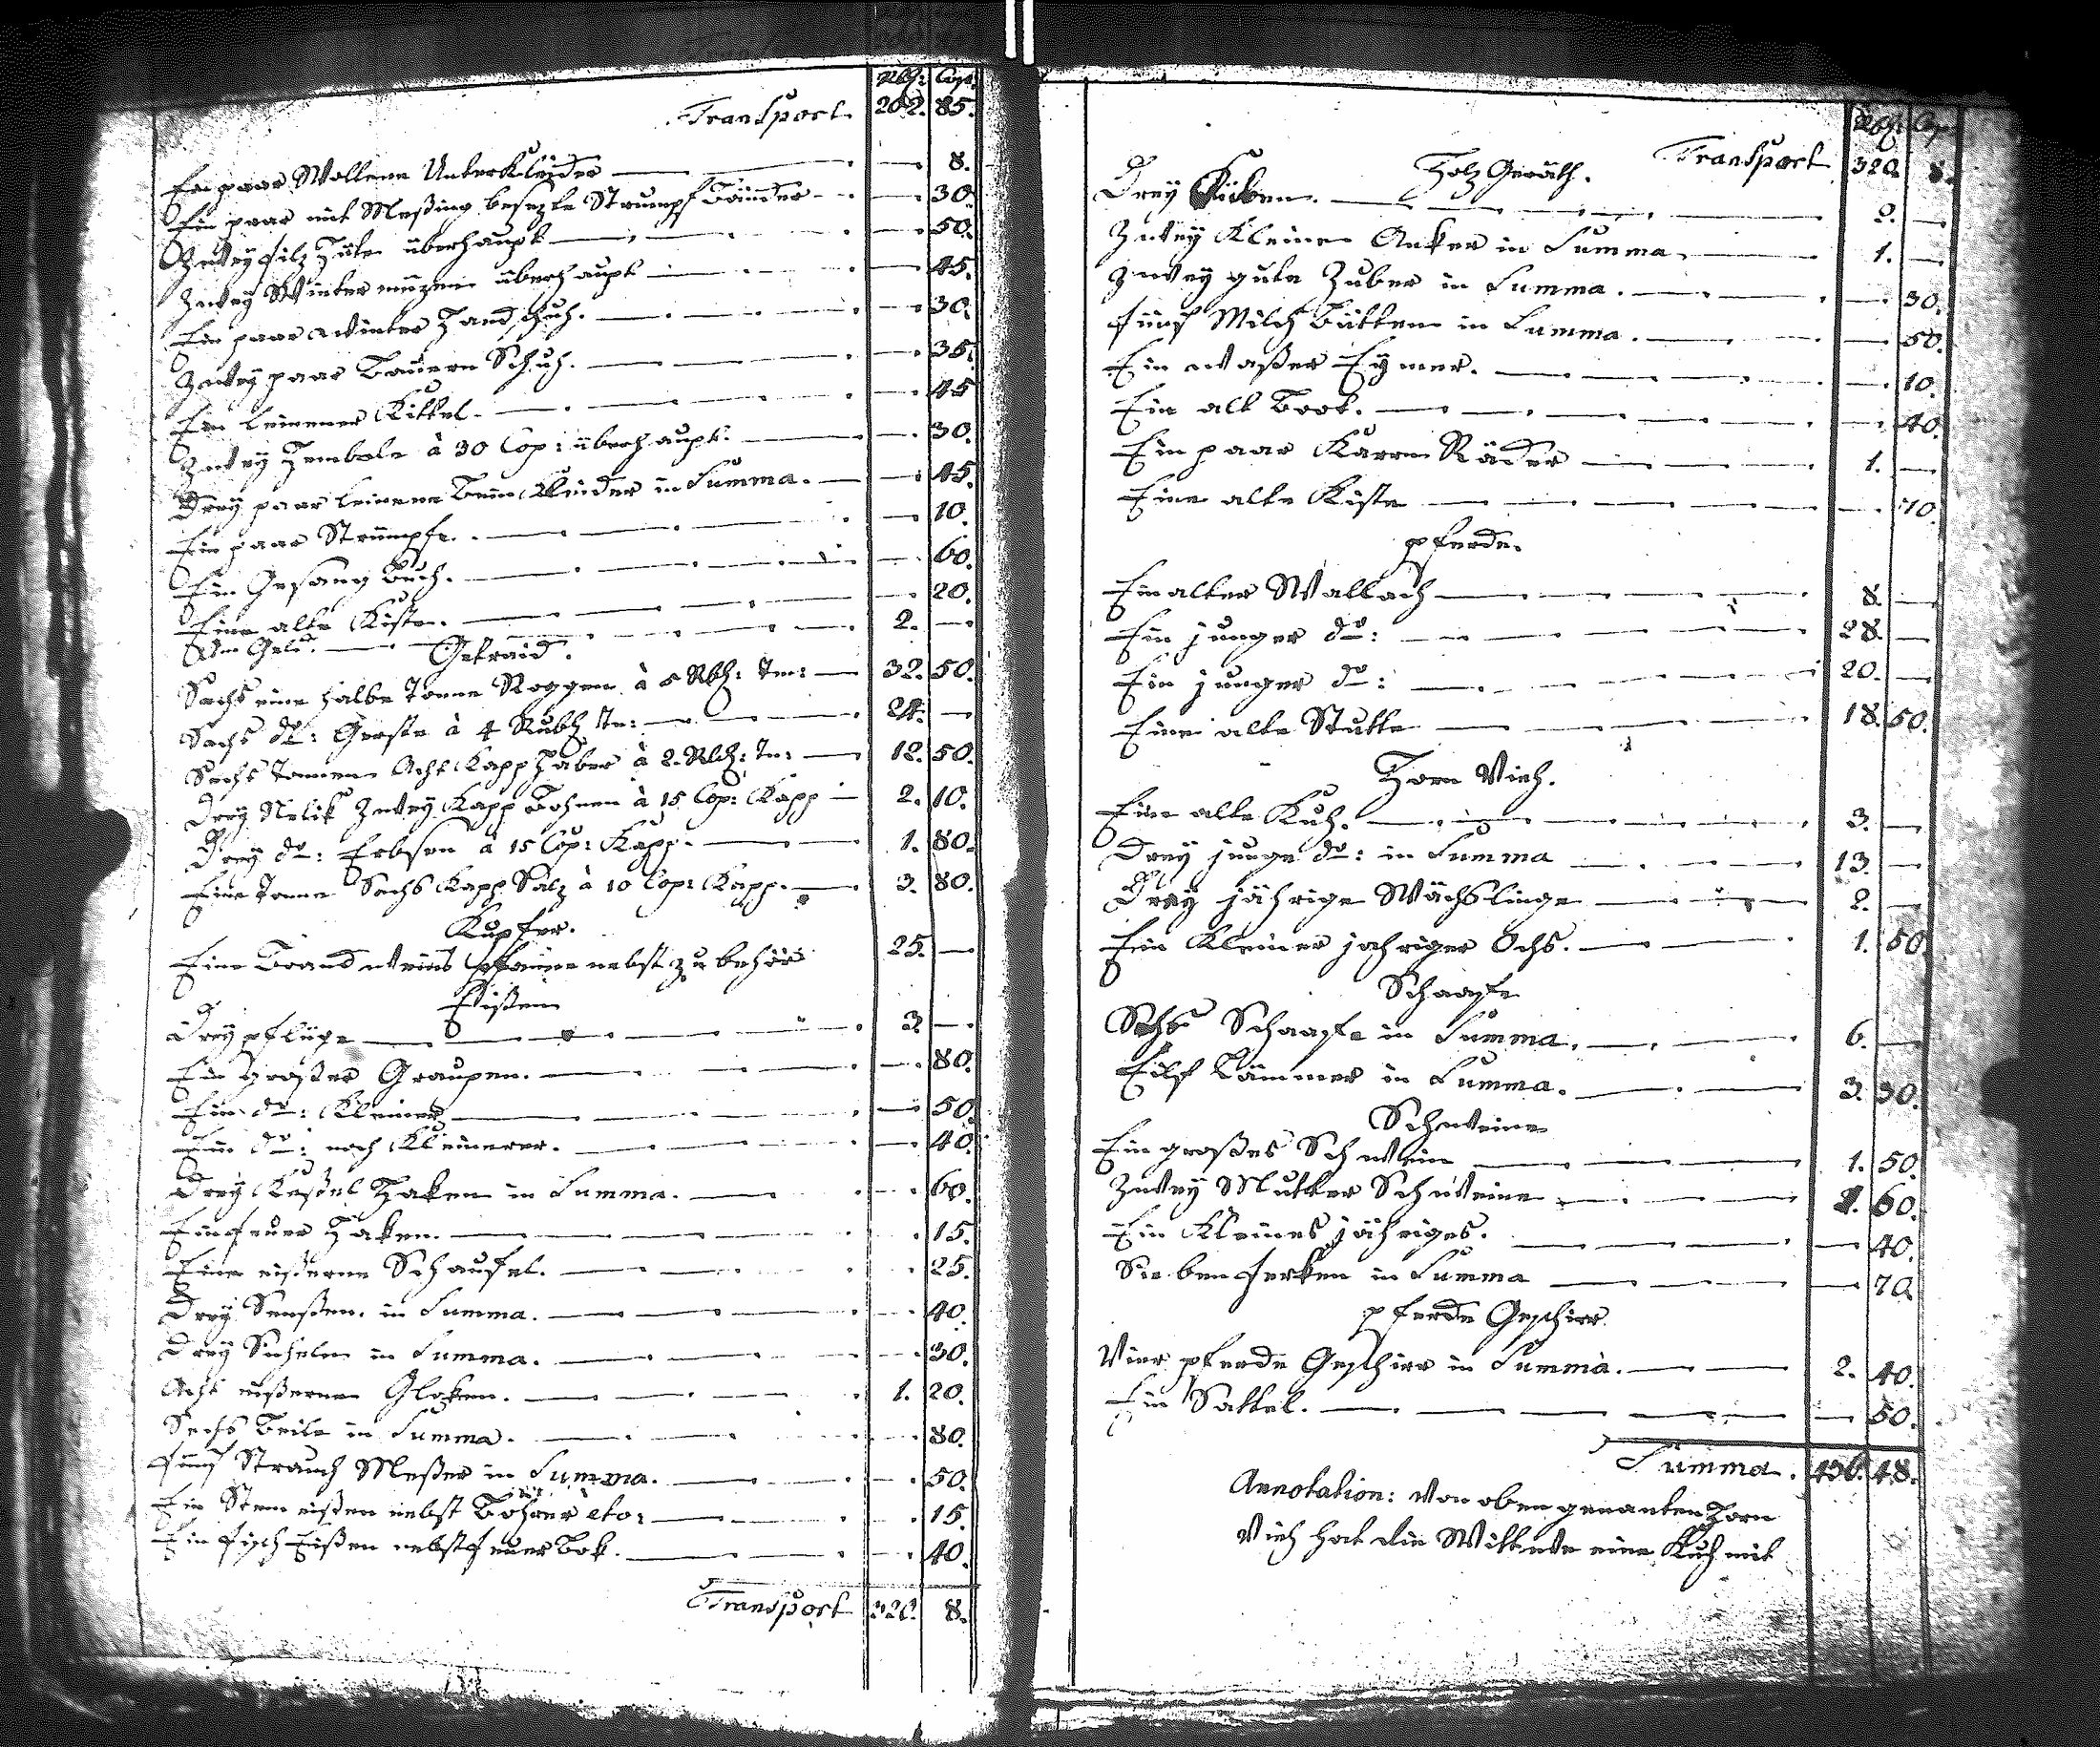 Rbl: Cop:
Transport 202. 85.
Ein paar Wollene Unterkleider — 8.
Ein paar mit Meßing besezte Strumpf Bänder — 30.
Zwey filz Hüte überhaupt — 50.
Zwey Winter müzen überhaupt — 45.
Ein paar Winter Handschuh. — 30.
Zwey paar Bauern Schuh. — 35.
Ein leinener Kittel — 45
Zwey Hembde à 30 Cop: überhaupt. — 30.
Drey paar leinene Beinkleider in Summa. — 45.
Ein paar Strümpfe. — 10.
Ein Gesang Buch. — 60.
Eine alte Kiste. — 20.
An Geld. — 2. —
Getraid.
Sechs eine halbe Tonne Roggen à 5 Rbl: Tn: — 32. 50.
Sechs do: Gerste à 4 Rubl Tn: — 24. —
Sechs Tonnen Acht Kapp Haber à 2. Rbl: Tn: — 12. 50.
Drey Nelik Zwey Kapp Bohnen à 15 Cop: Kapp — 2. 10.
Drey do: Erbsen à 15 Cop: Kapp. — 1. 80.
Eine Tonne Sechs Kapp Salz à 10 Cop: Kapp. — 3. 80.
Kupfer.
Eine Brandweins Pfanne nebst zubehör 25. —
Eißen
Drey pflüge — 3. —
Ein großer Graupen. — 80.
Ein do: Kleiner — 50.
Ein do: noch Kleinerer. — 40.
Drey Keßel Haken in Summa. — 60.
Ein feuer Haken. — 15.
Eine eißerne Schaufel. — 25.
Drey Senßen. in Summa. — 40.
Drey Sicheln in Summa. — 30.
Acht eißerne Gloken. — 1. 20.
Sechs Beile in Summa. — 80.
fünf Strauch Meßer in Summa. — 50.
Ein Stem eißen nebst Bohrer etc: — 15.
Ein fisch Eißen nebst feuer Bok. — 40.
Transport 320. 8.
Rbl: Cop:
Transport 320. 8.
Holz Geräth.
Drey Küben. — 2. —
Zwey Kleine Anker in Summa — 1. —
Zwey gute Zuber in Summa. — 30.
fünf Milch Bütten in Summa. — 50.
Ein waßer Eymer. — 10.
Ein alt Boot. — 40.
Ein paar Karren Räder — 1. —
Eine alte Kiste — 10.
pferde.
Ein alter Wallach — 8. —
Ein junger do: — 28. —
Ein junger do: — 20. —
Eine alte Stutte — 18. 50.
Horn Vieh.
Eine alte Kuh. — 3. —
Drey junge do: in Summa — 13. —
Drey jährige Wächslinge — 2. —
Ein Kleiner jahriger Ochs. — 1. 50.
Schaafe
Sechs Schaafe in Summa. — 6. —
Eilf Lämmer in Summa. — 3. 30.
Schweine
Ein großes Schwein — 1. 50.
Zwey Mutter Schweine — 2. 60.
Ein Kleines jähriges. — 40.
Sieben ferken in Summa — 70.
pferde Geschirr
Vier pferde Geschirr in Summa. — 2. 40.
Ein Sattel. — 50.
Summa. 436. 48.
Annotation: Von oben genanten Horn
Vieh hat die Wittwe eine Kuh mit